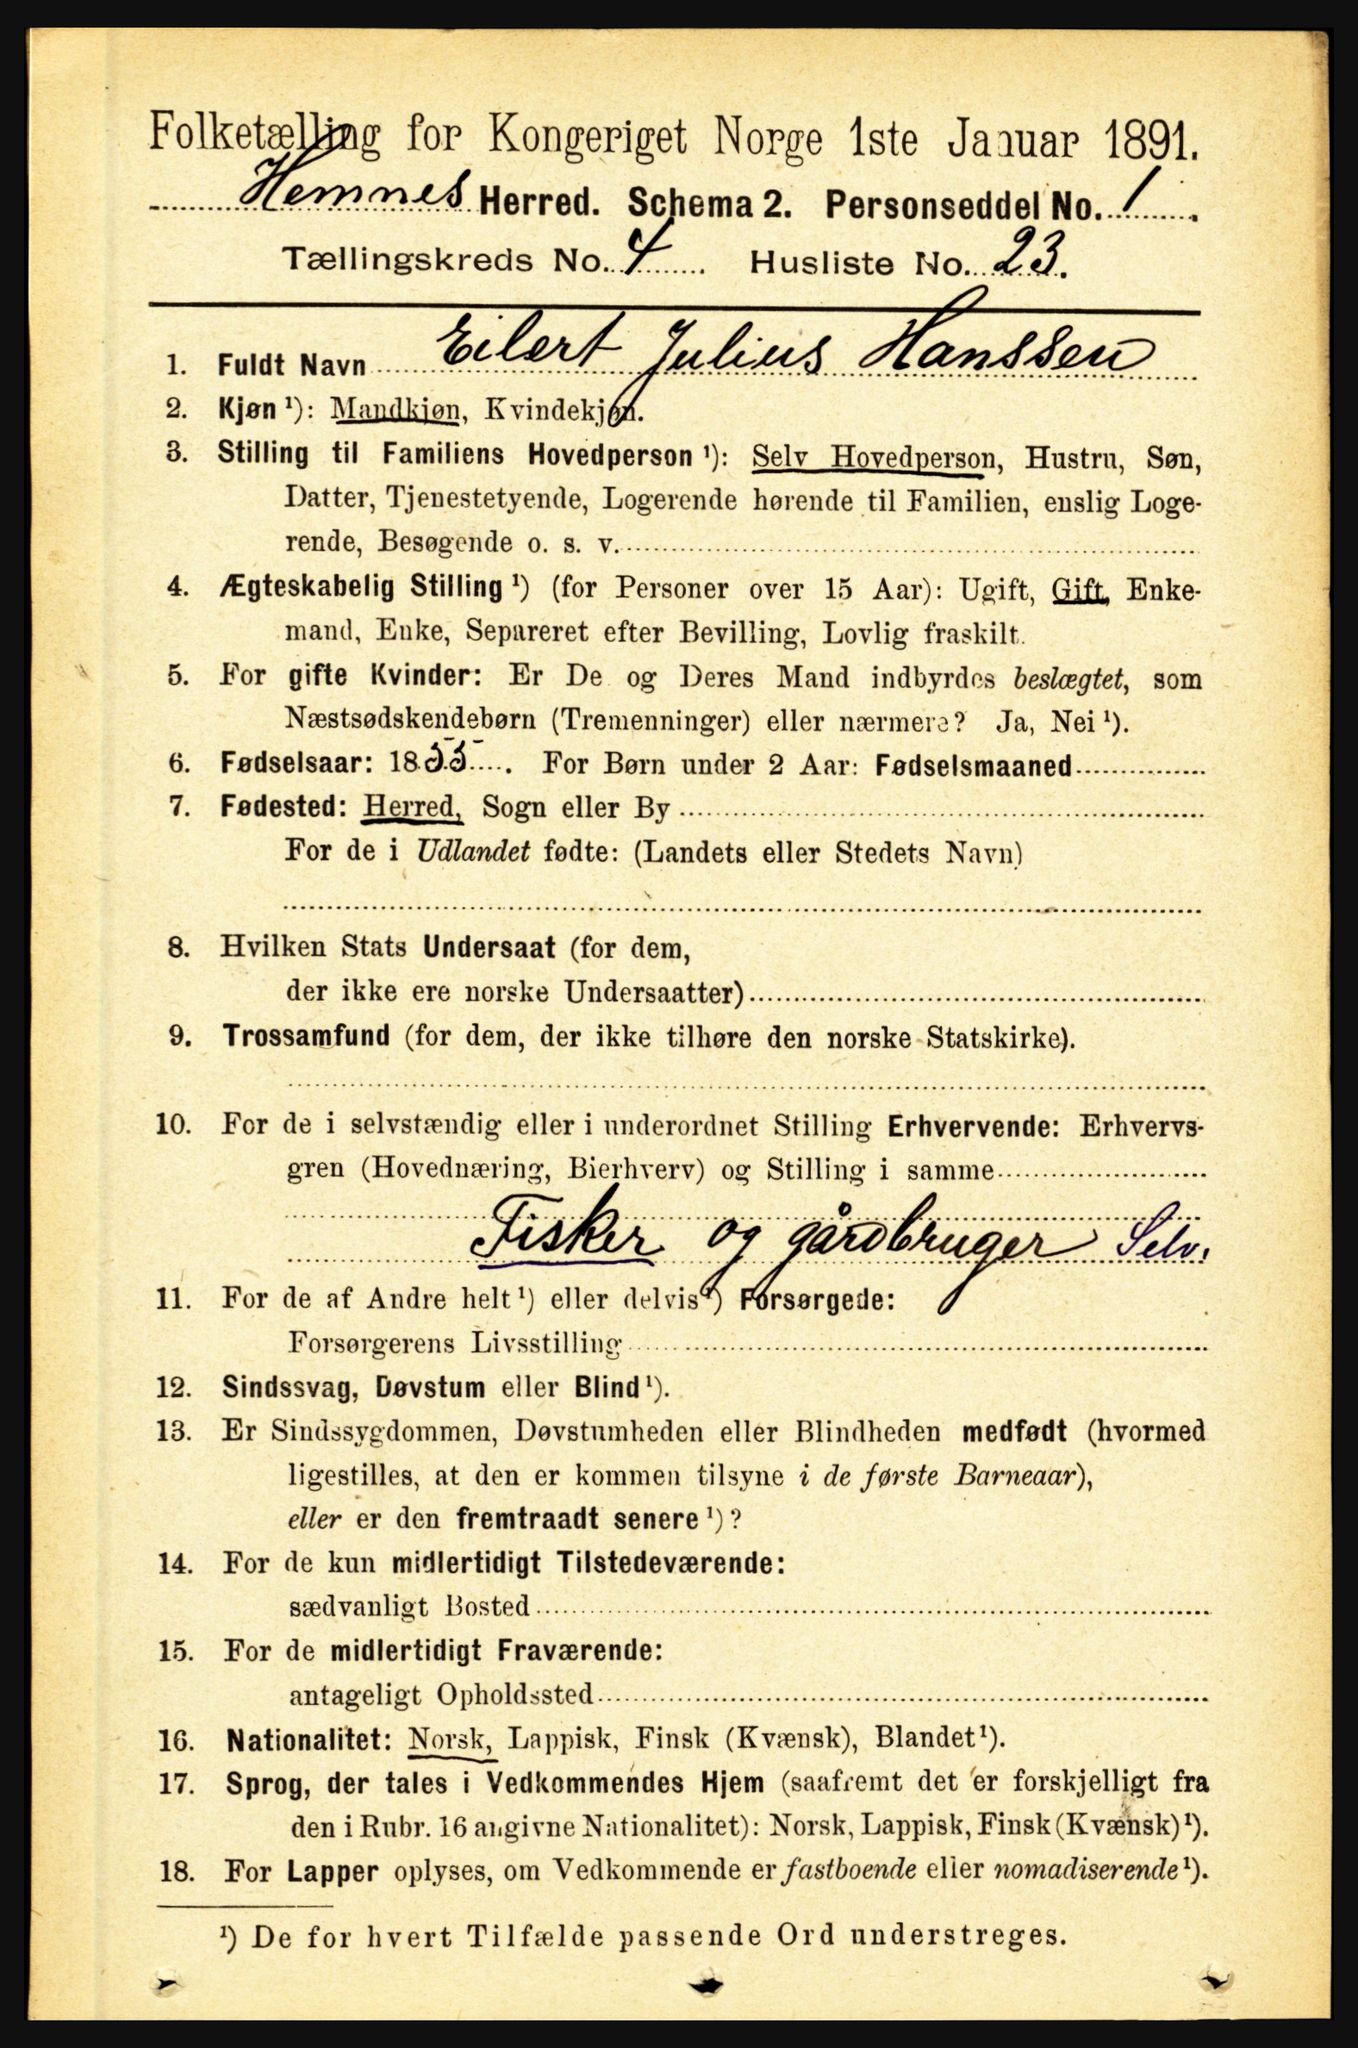 Folketælling for Kongeriget Norge 1ste Januar 1891.
Hemnes Herred. Schema 2. Personseddel No. 1.
Tællingskreds No. 4 Husliste No. 23.
1. Fuldt Navn Eilert Julius Hanssen
2. Kjøn ¹): Mandkjøn, Kvindekjøn.
3. Stilling til Familiens Hovedperson ¹): Selv Hovedperson, Hustru, Søn,
Datter, Tjenestetyende, Logerende hørende til Familien, enslig Loge-
rende, Besøgende o. s. v.
4. Ægteskabelig Stilling ¹) (for Personer over 15 Aar): Ugift, Gift, Enke-
mand, Enke, Separeret efter Bevilling, Lovlig fraskilt.
5. For gifte Kvinder: Er De og Deres Mand indbyrdes beslægtet, som
Næstsødskendebørn (Tremenninger) eller nærmere? Ja, Nei ¹).
6. Fødselsaar: 1855. For Børn under 2 Aar: Fødselsmaaned
7. Fødested: Herred, Sogn eller By
For de i Udlandet fødte: (Landets eller Stedets Navn)
8. Hvilken Stats Undersaat (for dem,
der ikke ere norske Undersaatter)
9. Trossamfund (for dem, der ikke tilhøre den norske Statskirke).
10. For de i selvstændig eller i underordnet Stilling Erhvervende: Erhvervs-
gren (Hovednæring, Bierhverv) og Stilling i samme
Fisker og gårdbruger Selv.
11. For de af Andre helt ¹) eller delvis ¹) Forsørgede:
Forsørgerens Livsstilling
12. Sindssvag, Døvstum eller Blind ¹).
13. Er Sindssygdommen, Døvstumheden eller Blindheden medfødt (hvormed
ligestilles, at den er kommen tilsyne i de første Barneaar),
eller er den fremtraadt senere ¹)?
14. For de kun midlertidigt Tilstedeværende:
sædvanligt Bosted
15. For de midlertidigt Fraværende:
antageligt Opholdssted
16. Nationalitet: Norsk, Lappisk, Finsk (Kvænsk), Blandet ¹).
17. Sprog, der tales i Vedkommendes Hjem (saafremt det er forskjelligt fra
den i Rubr. 16 angivne Nationalitet): Norsk, Lappisk, Finsk (Kvænsk) ¹).
18. For Lapper oplyses, om Vedkommende er fastboende eller nomadiserende ¹).
¹) De for hvert Tilfælde passende Ord understreges.